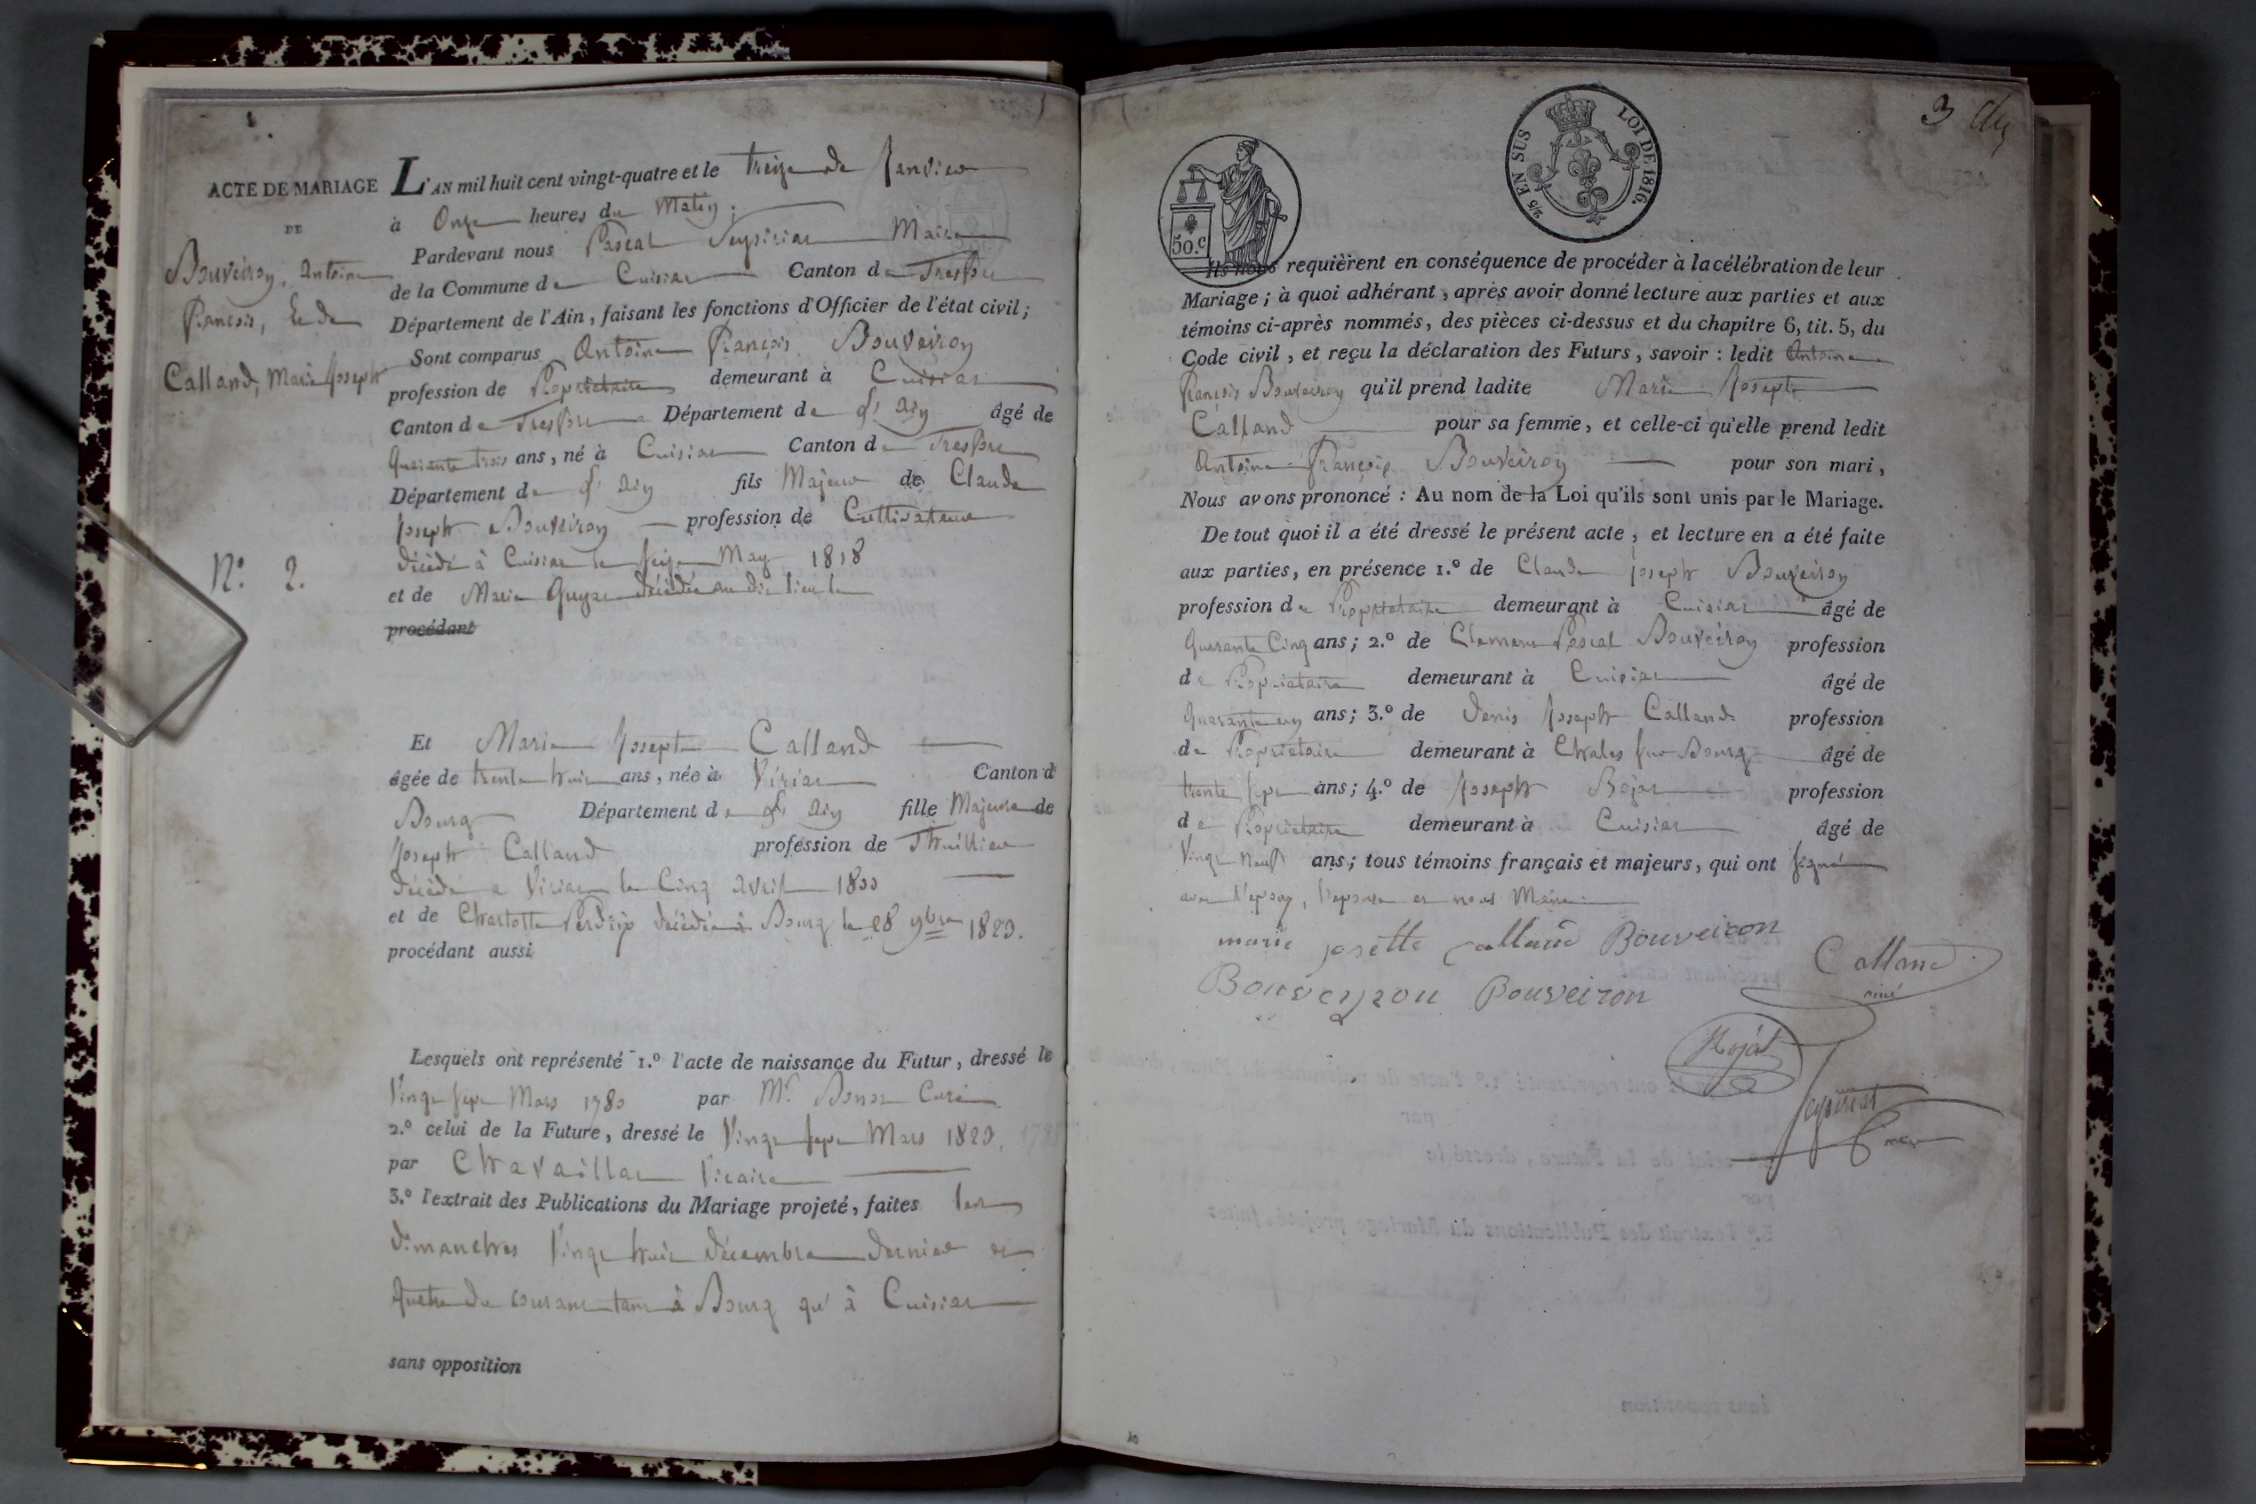 ACTE DE MARIAGE
DE
Bouveiron, Antoine
François, Et de
Calland, Marie Joseph
N.° 2.
L'AN mil huit cent vingt-quatre et le treize de Janvier
à Onze heures du Matin;
Pardevant nous Pascal Seysiriat Maire
de la Commune de Cuisiat Canton de Treffort
Département de l'Ain, faisant les fonctions d'Officier de l'état civil;
Sont comparus Antoine François Bouveiron
profession de Propriétaire demeurant à Cuisiat
Canton de Treffort Département de l'Ain âgé de
Quarante trois ans, né à Cuisiat Canton de Treffort
Département de l'Ain fils Majeur de Claude
Joseph Bouveiron profession de Cultivateur
décédé à Cuisiat le seize May 1818
et de Marie décédée au dit lieu le
procédant
Et Marie Joseph Calland
âgée de trente huit ans, née à Viriat Canton d
Bourg Département de l'Ain fille Majeure de
Joseph Calland profession de Thuillier
décédé a Viriat le Cinq avril 1800
et de Charlotte décédée à Bourg le 28 9bre 1820.
procédant aussi
Lesquels ont représenté 1.° l'acte de naissance du Futur, dressé le
Vingt sept Mars 1780 par Mr. Curé
2.° celui de la Future, dressé le Vingt sept Mars
par Chavaillat Vicaire
3.° l'extrait des Publications du Mariage projeté, faites les
dimanches Vingt huit décembre dernier et
quatre du courant tant à Bourg qu'à Cuisiat
sans opposition
3
50.c
2/5 EN SUS LOI DE 1816.
Ils nous requièrent en conséquence de procéder à la célébration de leur
Mariage; à quoi adhérant, après avoir donné lecture aux parties et aux
témoins ci-après nommés, des pièces ci-dessus et du chapitre 6, tit. 5, du
Code civil, et reçu la déclaration des Futurs, savoir: ledit Antoine
François Bouveiron qu'il prend ladite Marie Joseph
Calland pour sa femme, et celle-ci qu'elle prend ledit
Antoine François Bouveiron pour son mari,
Nous avons prononcé: Au nom de la Loi qu'ils sont unis par le Mariage.
De tout quoi il a été dressé le présent acte, et lecture en a été faite
aux parties, en présence 1.° de Claude Joseph Bouveiron
profession de Propriétaire demeurant à Cuisiat âgé de
Quarante Cinq ans; 2.° de Clement Pascal Bouveiron profession
de Propriétaire demeurant à Cuisiat âgé de
Quarante un ans; 3.° de Denis Joseph Calland profession
de Propriétaire demeurant à Chales sur Bourg âgé de
trente sept ans; 4.° de Joseph Rojat profession
de Propriétaire demeurant à Cuisiat âgé de
Vingt neuf ans; tous témoins français et majeurs, qui ont signé
avec l'epoux, l'epouse et nous Maire
marie josette calland Bouveiron
Calland
Bouveyron Bouveiron
Rojat
Seysiriat